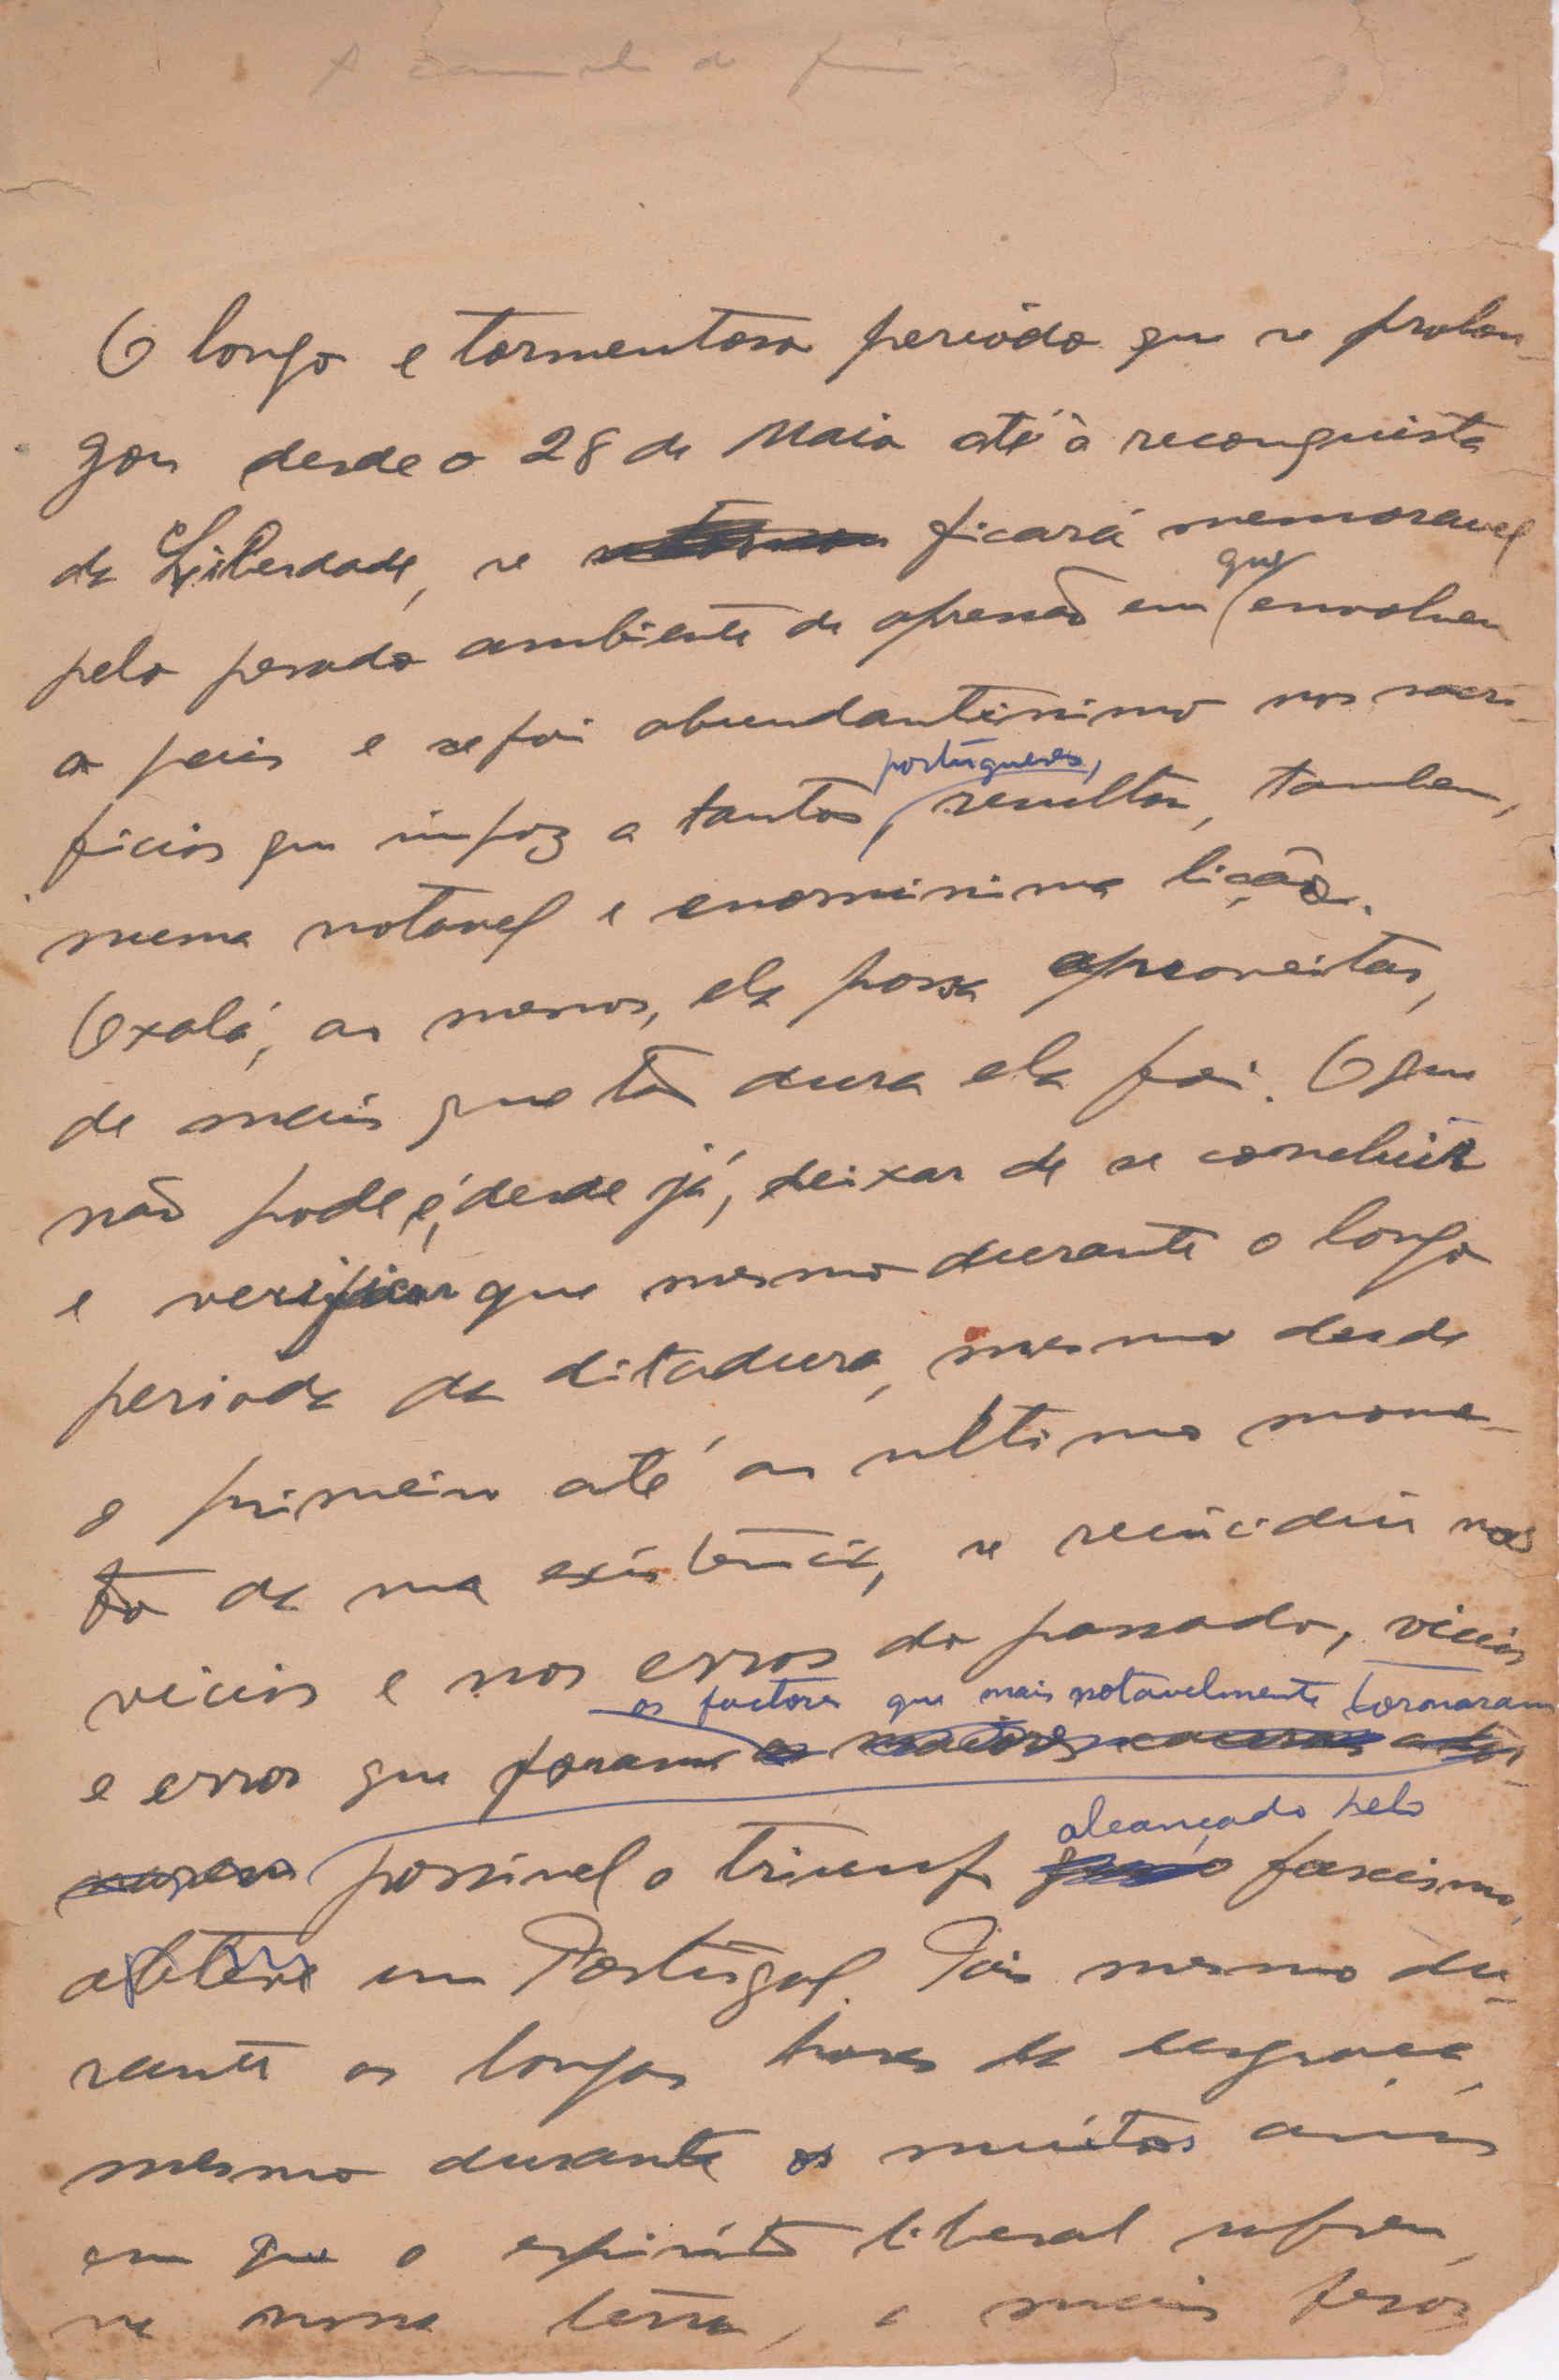 O longo e tormentoso periódo que se prolon-
gou desde o 28 de Maio até à reconquista
da Liberdade, se ficará memoravel
pelo pesado ambiente de opressão em que envolveu
o pais e se foi abundantissimo nos sacri-
ficios que impoz a tantos portugueses, resultou, tambem,
numa notavel e enormissima lição.
Oxalá, ao menos, ela possa aproveitar,
de mais que tão dura ela foi. O que
não pode, é, desde já, deixar de se concluir
e verificar que mesmo durante o longo
periodo da ditadura, mesmo desde
o primeiro até ao ultimo mome-
to da sua existencia, se reincidiu nos
vicios e nos erros do passado, vicios
os factores que mais notavelmente tornaram
e erros que foram as maiores causas a tor-
narem possivel o triunfo
alcançado pelo
fascismo,
obteve em Portugal. Pois mesmo du-
rante as longas horas da desgraça,
mesmo durante os muitos anos
em que o espirito liberal sofreu,
na nossa terra, a mais feroz